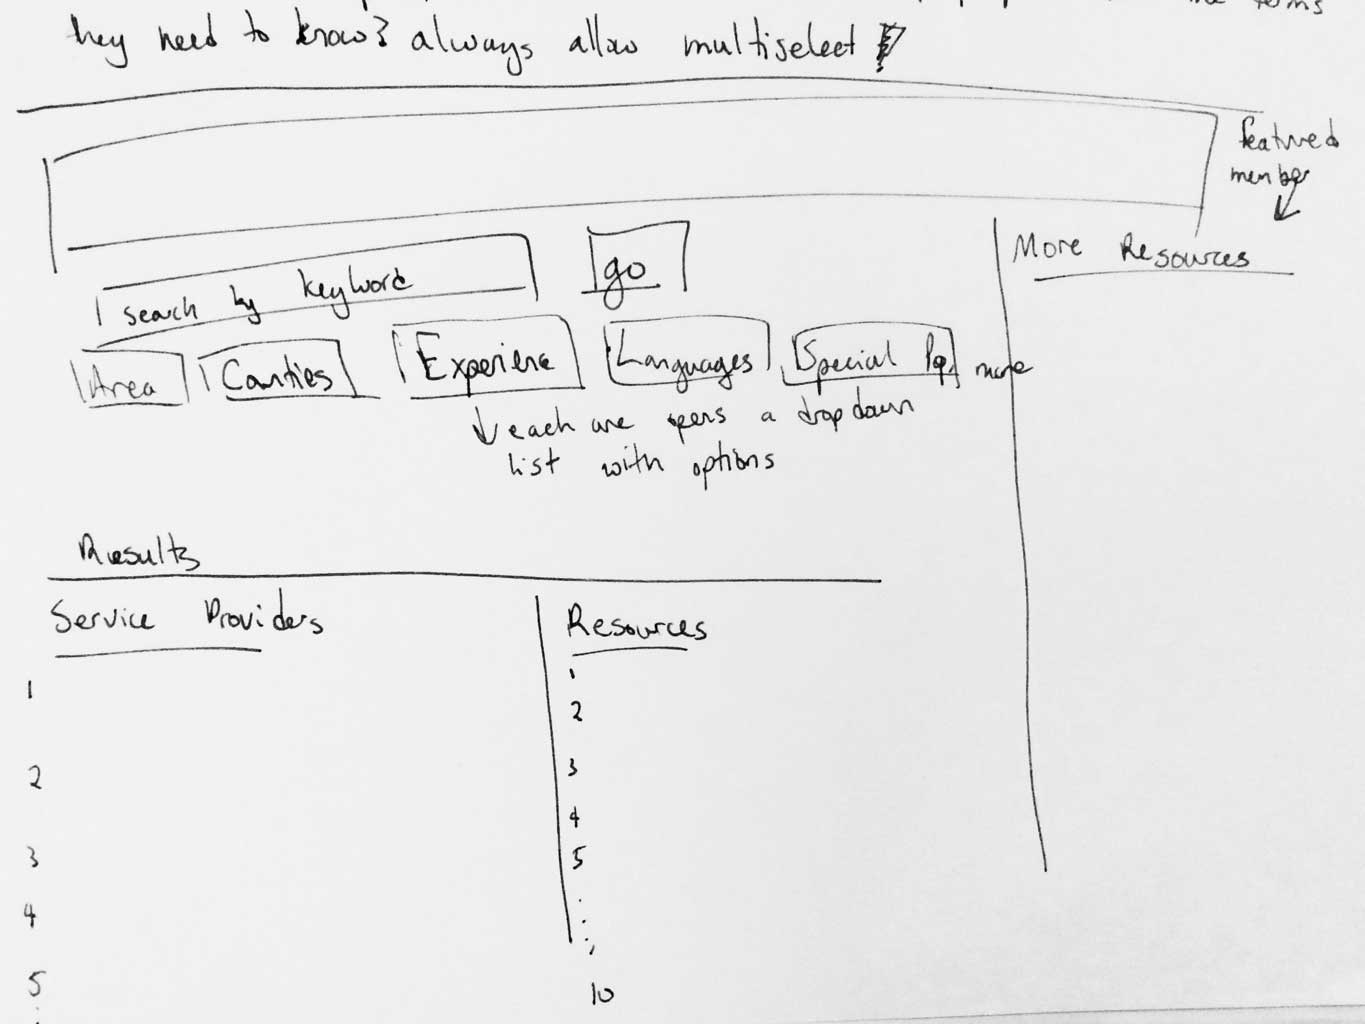 the terms
they need to know? always allow multiselect
Featured
member
search by keyword
go
More Resources
Area
Counties
Experience
Languages
Special Pop.
more
each one opens a dropdown
list with options
Results
Service Providers
Resources
1
2
3
4
5
1
2
3
4
5
10